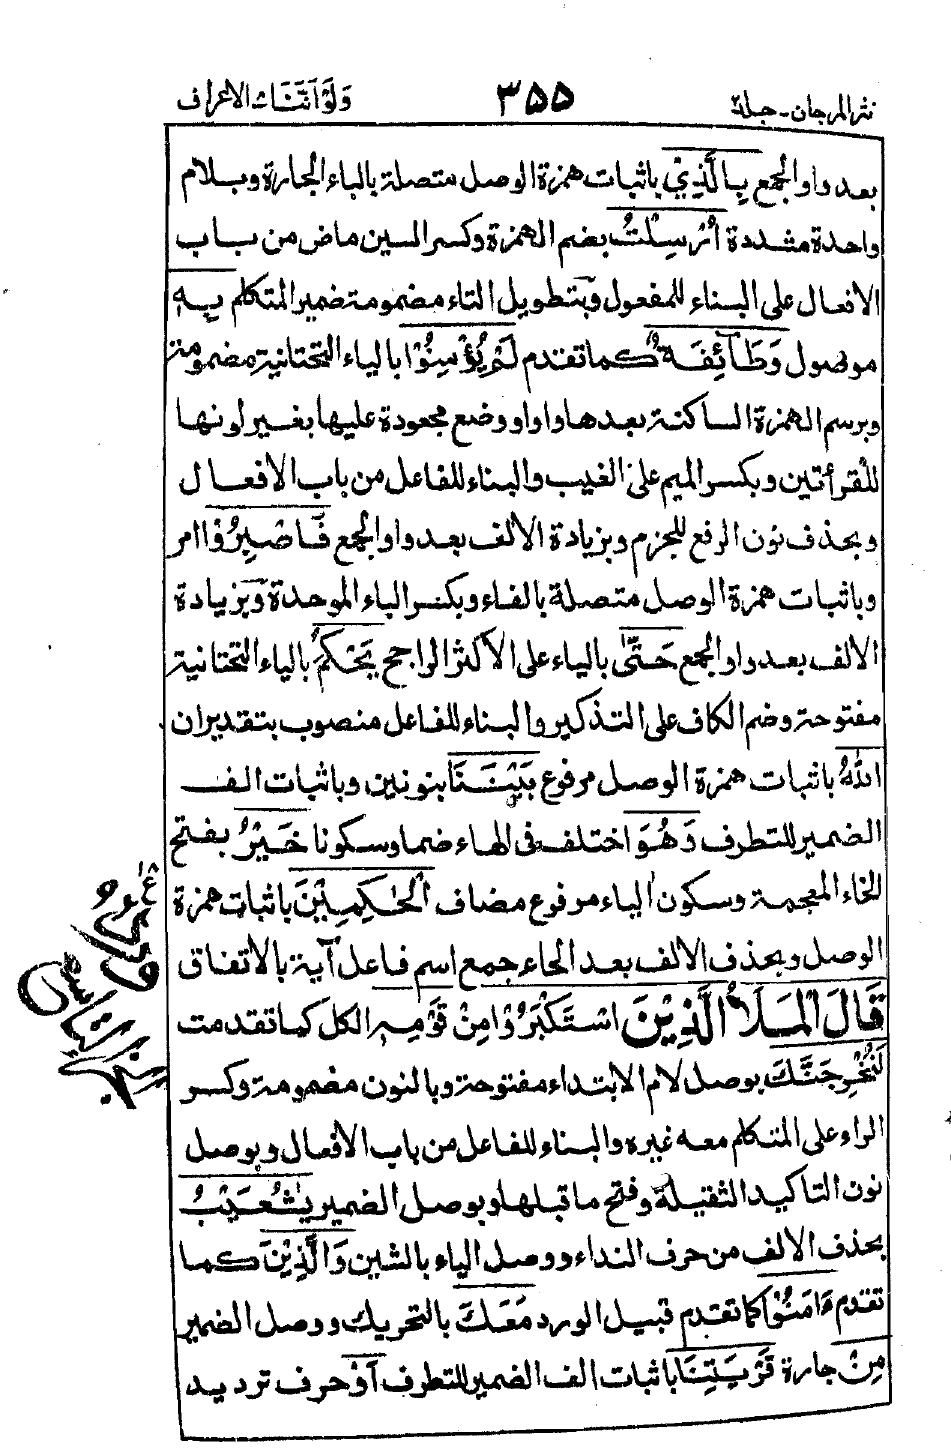 نثر المرجان - جلد٢ ٣٥٥ وَلَوْ اَنَّنَا - الاعراف
بعد واو الجمع بِالَّذِيْ باثبات همزة الوصل متصلة بالباء الجارة وبلام
واحدة مشددة اُرْسِلْتُ بضم الهمزة وكسر السين ماض من باب
الافعال على البناء للمفعول وبتطويل التاء مضمومة ضمير المتكلم بِهٖ
موصول وَطَآئِفَةٌ كما تقدم لَمْ يُؤْمِنُوْا بالياء التحتانية مضمومة
وبرسم الهمزة الساكنة بعدها واوا ووضع مجعودة عليها بغير لونها
للقرأتين وبكسر الميم على الغيب والبناء للفاعل من باب الافعال
وبحذف نون الرفع للجزم وبزيادة الالف بعد واو الجمع فَاصْبِرُوْا امر
وباثبات همزة الوصل متصلة بالفاء وبكسر الباء الموحدة وبزيادة
الالف بعد واو الجمع حَتّٰى بالياء على الاكثر الراجح يَحْكُمَ بالياء التحتانية
مفتوحة وضم الكاف على التذكير والبناء للفاعل منصوب بتقدير ان
اللّٰهُ باثبات همزة الوصل مرفوع بَيْنَنَا بنونين وباثبات الف
الضمير للتطرف وَهُوَ اختلف فى الهاء ضما وسكونا خَيْرُ بفتح
الخاء المعجمة وسكون الياء مرفوع مضاف الْحٰكِمِيْنَ باثبات همزة
الوصل وبحذف الالف بعد الحاء جمع اسم فاعل آية بالاتفاق
قَالَ الْمَلَاُ الَّذِيْنَ اسْتَكْبَرُوْا مِنْ قَوْمِهٖ الكل كما تقدمت
لَنُخْرِجَنَّكَ بوصل لام الابتداء مفتوحة وبالنون مضمومة وكسر
الراء على المتكلم معه غيره والبناء للفاعل من باب الافعال وبوصل
نون التاكيد الثقيلة وفتح ما قبلها وبوصل الضمير يٰشُعَيْبُ
بحذف الالف من حرف النداء ووصل الياء بالشين وَالَّذِيْنَ كما
تقدم ءَامَنُوْا كما تقدم قبيل الورد مَعَكَ بالتحريك ووصل الضمير
مِنْ جارة قَرْيَتِنَا باثبات الف الضمير للتطرف اَوْ حرف ترديد